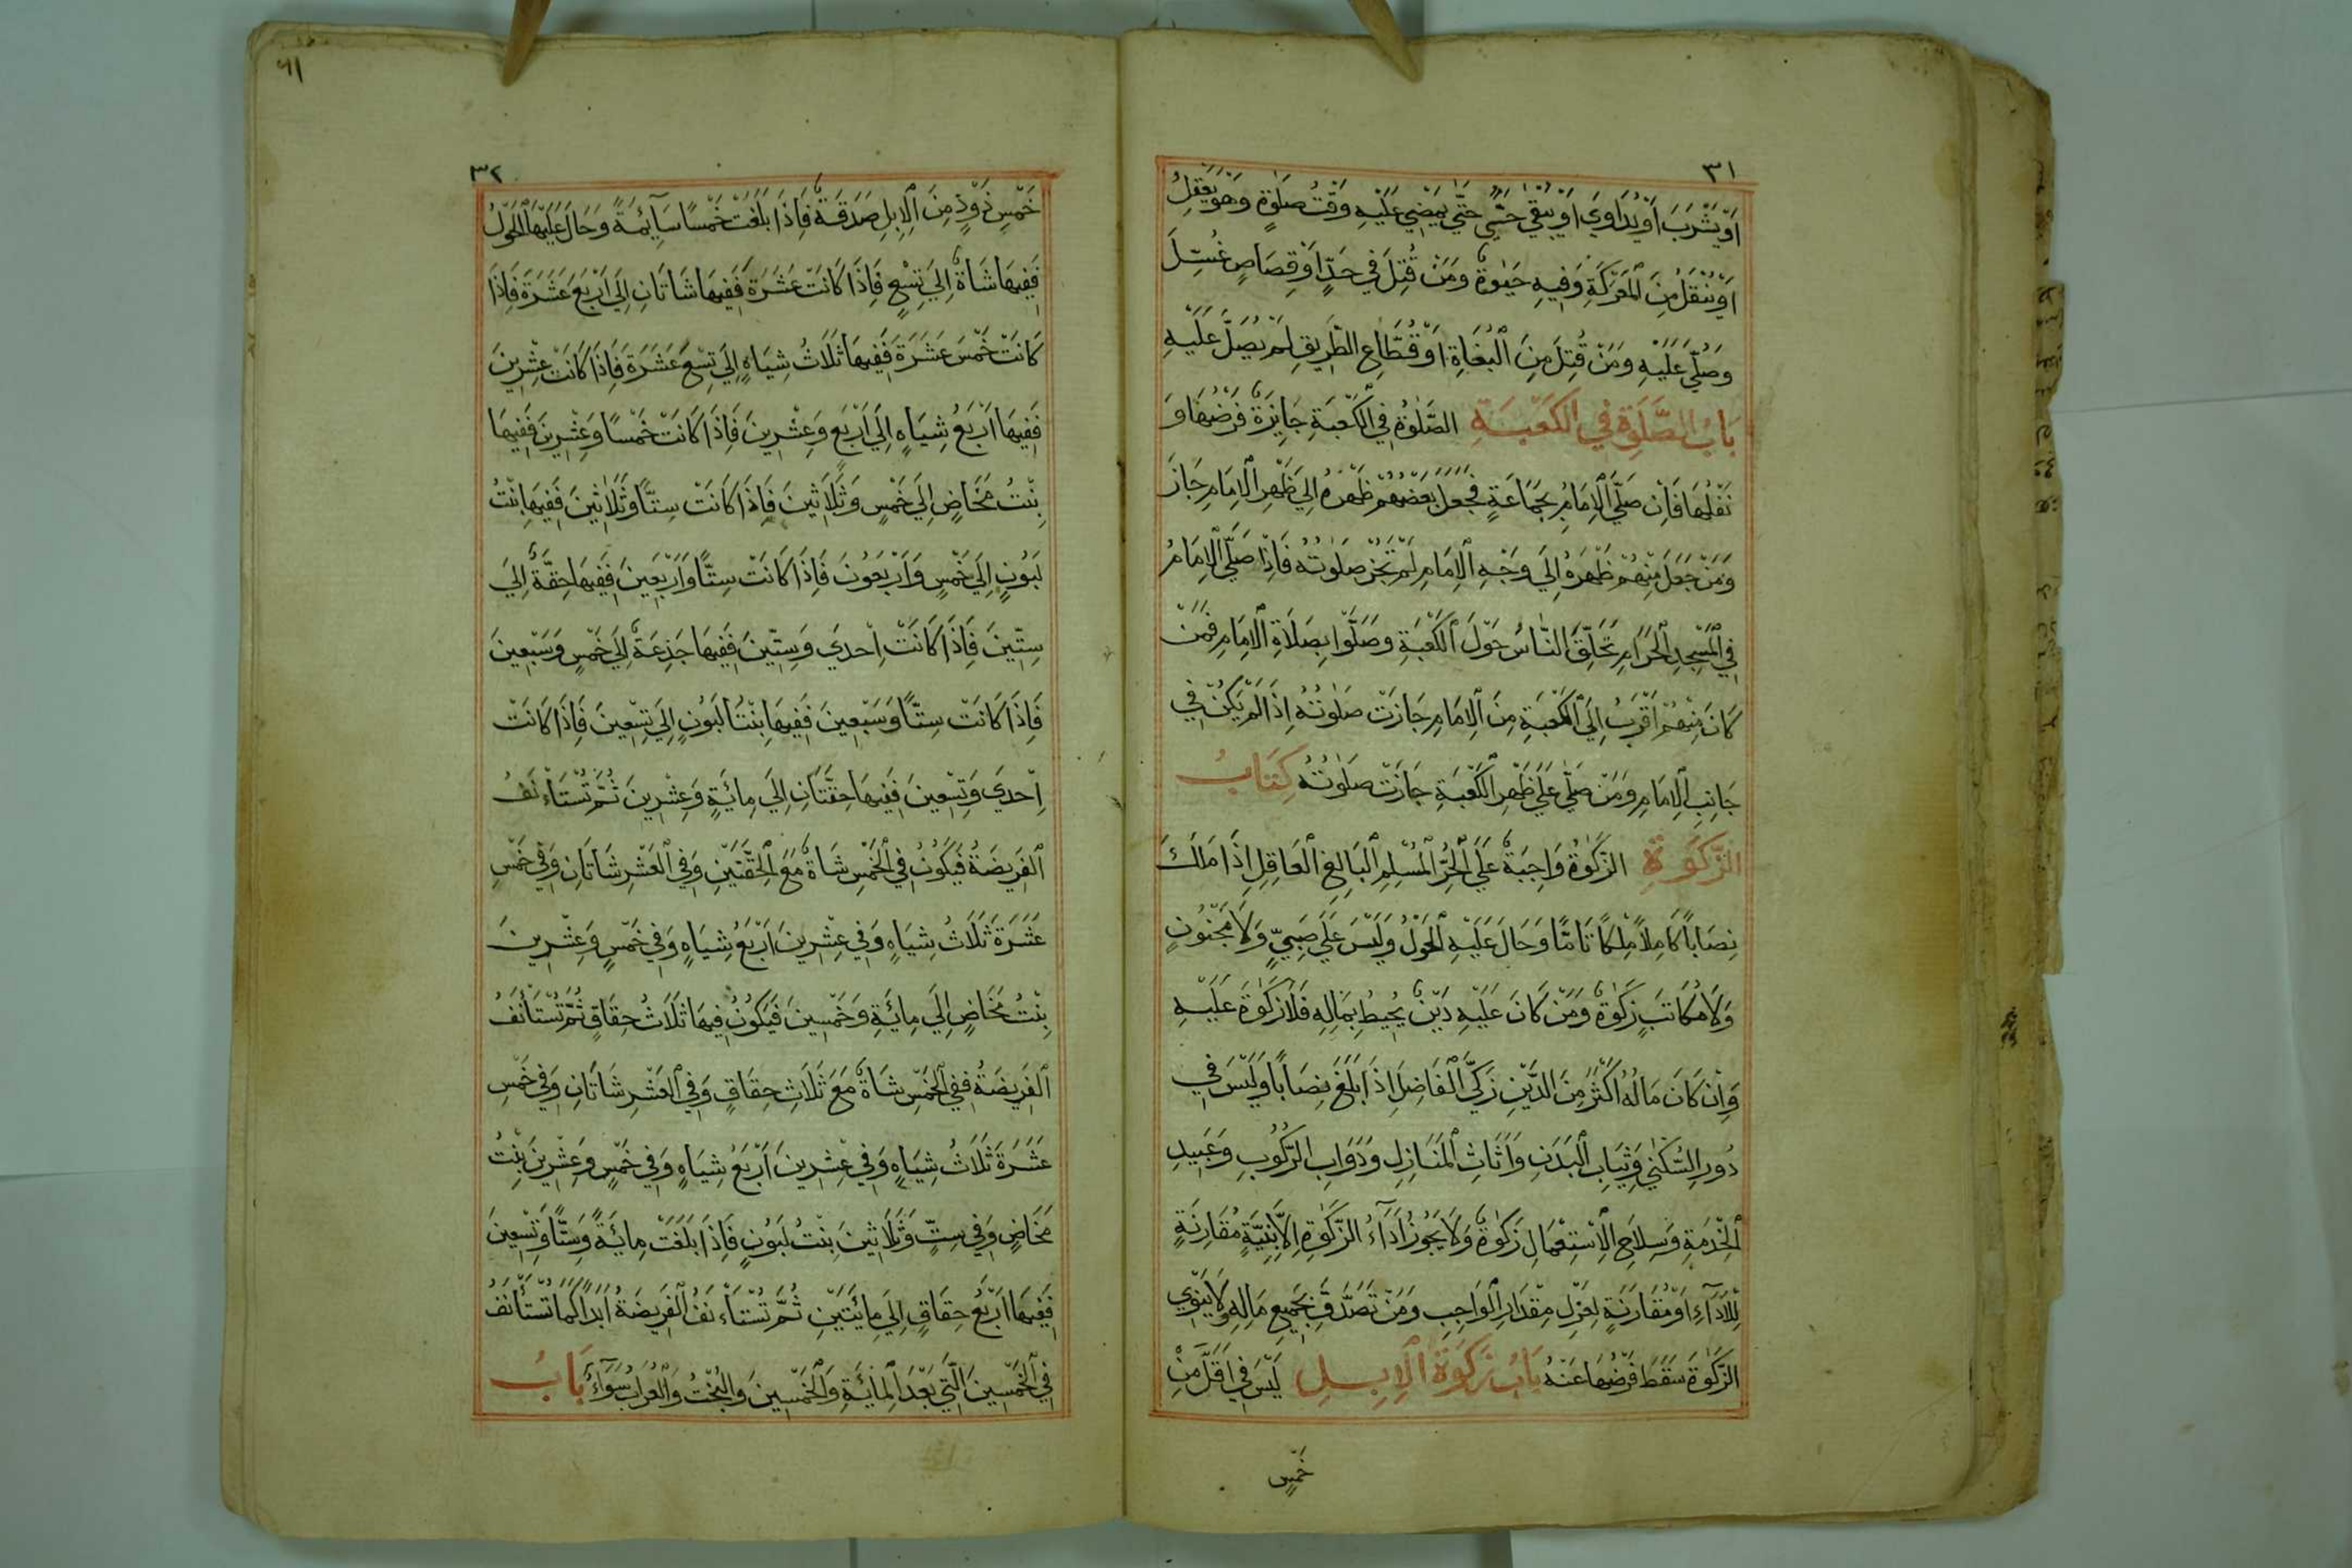 ٣١
اَوْ يَشْرَبَ اَوْ يُدَاوِيَ اَوْ يَبْقٰى حَتّٰى يَمْضِيَ عَلَيْهِ وَقْتُ صَلٰوةٍ وَهُوَ يَعْقِلُ
اَوْ يُنْقَلُ مِنَ الْمَعْرَكَةِ وَفِيهِ حَيٰوةٌ وَمَنْ قُتِلَ فِي حَدٍّ اَوْ قِصَاصٍ غُسِّلَ
وَصُلِّيَ عَلَيْهِ وَمَنْ قُتِلَ مِنَ الْبُغَاةِ اَوْ قُطَّاعِ الطَّرِيقِ لَمْ يُصَلَّ عَلَيْهِ
بَابُ الصَّلَوةِ فِي الْكَعْبَةِ الصَّلٰوةُ فِي الْكَعْبَةِ جَايِزَةٌ فَرْضُهَا وَ
نَفْلُهَا فَاِنْ صَلَّى الْاِمَامُ بِجَمَاعَةٍ فَجَعَلَ بَعْضُهُمْ ظَهْرَهُ اِلَي ظَهْرِ الْاِمَامِ جَازَ
وَمَنْ جَعَلَ مِنْهُمْ ظَهْرَهُ اِلَي وَجْهِ الْاِمَامِ لَمْ تَجُزْ صَلٰوتُهُ فَاِذَا صَلَّى الْاِمَامُ
فِي الْمَسْجِدِ الْحَرَامِ تَحَلَّقَ النَّاسُ حَوْلَ الْكَعْبَةِ وَصَلَّوْا بِصَلَاةِ الْاِمَامِ فَمَنْ
كَانَ مِنْهُمْ اَقْرَبَ اِلَي الْكَعْبَةِ مِنَ الْاِمَامِ جَازَتْ صَلٰوتُهُ اِذَا لَمْ يَكُنْ فِي
جَانِبِ الْاِمَامِ وَمَنْ صَلَّي عَلَي ظَهْرِ الْكَعْبَةِ جَازَتْ صَلٰوتُهُ كِتَابُ
الزَّكَوةِ الزَّكٰوةُ وَاجِبَةٌ عَلَي الْحُرِّ الْمُسْلِمِ الْبَالِغِ الْعَاقِلِ اِذَا مَلَكَ
نِصَابًا كَامِلًا مِلْكًا تَامًّا وَحَالَ عَلَيْهِ الْحَوْلُ وَلَيْسَ عَلَي صَبِيٍّ وَلَا مَجْنُونٍ
وَلَا مُكَاتَبٍ زَكٰوةٌ وَمَنْ كَانَ عَلَيْهِ دَيْنٌ يُحِيطُ بِمَالِهِ فَلَا زَكٰوةَ عَلَيْهِ
وَاِنْ كَانَ مَالُهُ اَكْثَرَ مِنَ الدَّيْنِ زَكَّى الْفَاضِلَ اِذَا بَلَغَ نِصَابًا وَلَيْسَ فِي
دُورِ السُّكْنٰي وَثِيَابِ الْبَدَنِ وَاَثَاثِ الْمَنَازِلِ وَدَوَابِ الرُّكُوبِ وَعَبِيدِ
الْخِدْمَةِ وَسِلَاحِ الْاِسْتِعْمَالِ زَكٰوةٌ وَلَا يَجُوزُ اَدَآءُ الزَّكٰوةِ اِلَّا بِنِيَّةٍ مُقَارِنَةٍ
لِلْاَدَآءِ اَوْ مُقَارَنَةٍ لِعَزْلِ مِقْدَارِ الْوَاجِبِ وَمَنْ تَصَدَّقَ بِجَمِيعِ مَالِهِ وَلَا يَنْوِي
الزَّكٰوةَ سَقَطَ فَرْضُهَا عَنْهُ بَابُ زَكَوةِ الْاِبِلِ لَيْسَ فِي اَقَلَّ مِنْ
خَمْسِ
٦١
٣٢
خَمْسِ ذَوْدٍ مِنَ الْاِبِلِ صَدَقَةٌ فَاِذَا بَلَغَتْ خَمْسًا سَآئِمَةً وَحَالَ عَلَيْهَا الْحَوْلُ
فَفِيهَا شَاةٌ اِلَي تِسْعٍ فَاِذَا كَانَتْ عَشَرَةَ فَفِيهَا شَاتَانِ اِلَي اَرْبَعَ عَشَرَةَ فَاِذَا
كَانَتْ خَمْسَ عَشَرَةَ فَفِيهَا ثَلَاثُ شِيَاهٍ اِلَي تِسْعَ عَشَرَةَ فَاِذَا كَانَتْ عِشْرِينَ
فَفِيهَا اَرْبَعُ شِيَاهٍ اِلَي اَرْبَعٍ وَعِشْرِينَ فَاِذَا كَانَتْ خَمْسًا وَعِشْرِينَ فَفِيهَا
بِنْتُ مَخَاضٍ اِلَي خَمْسٍ وَثَلَاثِينَ فَاِذَا كَانَتْ سِتًّا وَثَلٰثِينَ فَفِيهَا بِنْتُ
لَبُونٍ اِلَي خَمْسٍ وَاَرْبَعُونَ فَاِذَا كَانَتْ سِتًّا وَاَرْبَعِينَ فَفِيهَا حِقَّةٌ اِلَي
سِتِّينَ فَاِذَا كَانَتْ اِحْدَي وَسِتِّينَ فَفِيهَا جَذِعَةٌ اِلَي خَمْسٍ وَسَبْعِينَ
فَاِذَا كَانَتْ سِتًّا وَسَبْعِينَ فَفِيهَا بِنْتَا لَبُونٍ اِلَي تِسْعِينَ فَاِذَا كَانَتْ
اِحْدَي وَتِسْعِينَ فَفِيهَا حِقَّتَانِ اِلَي مِائَةٍ وَعِشْرِينَ ثُمَّ تُسْتَأْنَفُ
الْفَرِيضَةُ فَيَكُونُ فِي الْخَمْسِ شَاةٌ مَعَ الْحِقَّتَيْنِ وَفِي الْعَشْرِ شَاتَانِ وَفِي خَمْسِ
عَشَرَةَ ثَلَاثُ شِيَاهٍ وَفِي عِشْرِينَ اَرْبَعُ شِيَاهٍ وَفِي خَمْسٍ وَعِشْرِينَ
بِنْتُ مَخَاضٍ اِلَي مِائَةٍ وَخَمْسِينَ فَيَكُونُ فِيهَا ثَلَاثُ حِقَاقٍ ثُمَّ تُسْتَأْنَفُ
الْفَرِيضَةُ فَفِي الْخَمْسِ شَاةٌ مَعَ ثَلَاثِ حِقَاقٍ وَفِي الْعَشْرِ شَاتَانِ وَفِي خَمْسِ
عَشَرَةَ ثَلَاثُ شِيَاهٍ وَفِي عِشْرِينَ اَرْبَعُ شِيَاهٍ وَفِي خَمْسٍ وَعِشْرِينَ بِنْتُ
مَخَاضٍ وَفِي سِتٍّ وَثَلَاثِينَ بِنْتُ لَبُونٍ فَاِذَا بَلَغَتْ مِائَةً وَسِتًّا وَتِسْعِينَ
فَفِيهَا اَرْبَعُ حِقَاقٍ اِلَي مِائَتَيْنِ ثُمَّ تُسْتَأْنَفُ الْفَرِيضَةُ اَبَدًا كَمَا تُسْتَأْنَفُ
فِي الْخَمْسِينَ الَّتِي بَعْدَ الْمِائَةِ وَالْخَمْسِينَ وَالْبُخْتُ وَالْعِرَابُ سَوَآءٌ بَابُ